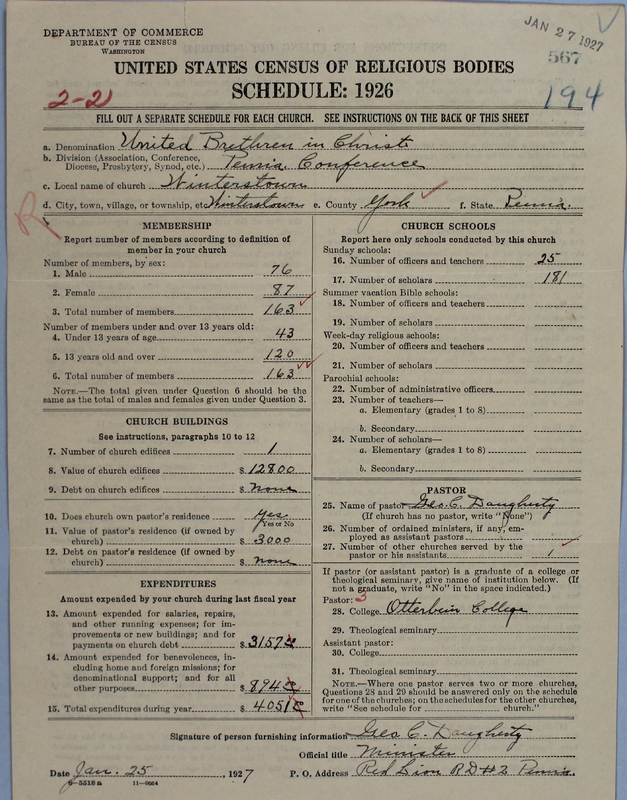 JAN 27 1927
DEPARTMENT OF COMMERCE
BUREAU OF THE CENSUS
WASHINGTON
567
UNITED STATES CENSUS OF RELIGIOUS BODIES
2-21
SCHEDULE: 1926
194
FILL OUT A SEPARATE SCHEDULE FOR EACH CHURCH. SEE INSTRUCTIONS ON THE BACK OF THIS SHEET
a. Denomination United Brethren in Christ
b. Division (Association, Conference, Diocese, Presbytery, Synod, etc.) Penna Conference
c. Local name of church Winterstown
d. City, town, village, or township, etc. Winterstown e. County York f. State Penna.
R
MEMBERSHIP
Report number of members according to definition of
member in your church
Number of members, by sex:
1. Male 76
2. Female 87
3. Total number of members 163
Number of members under and over 13 years old:
4. Under 13 years of age 43
5. 13 years old and over 120
6. Total number of members 163
NOTE.—The total given under Question 6 should be
same as the total of males and females given under Question 3.
CHURCH BUILDINGS
See instructions, paragraphs 10 to 12
7. Number of church edifices 1
8. Value of church edifices $ 12800
9. Debt on church edifices $ None
10. Does church own pastor's residence Yes
Yes or No
11. Value of pastor's residence (if owned by
church) $ 3000
12. Debt on pastor's residence (if owned by
church) $ None
EXPENDITURES
Amount expended by your church during last fiscal year
13. Amount expended for salaries, repairs,
and other running expenses; for im-
provements or new buildings; and for
payments on church debt $ 3157
14. Amount expended for benevolences, in-
cluding home and foreign missions; for
denominational support; and for all
other purposes $ 894
15. Total expenditures during year $ 4051
CHURCH SCHOOLS
Report here only schools conducted by this church
Sunday schools:
16. Number of officers and teachers 25
17. Number of scholars 181
Summer vacation Bible schools:
18. Number of officers and teachers
19. Number of scholars
Week-day religious schools:
20. Number of officers and teachers
21. Number of scholars
Parochial schools:
22. Number of administrative officers
23. Number of teachers—
a. Elementary (grades 1 to 8)
b. Secondary
24. Number of scholars—
a. Elementary (grades 1 to 8)
b. Secondary
PASTOR
25. Name of pastor Geo. C. Daugherty
(If church has no pastor, write "None")
26. Number of ordained ministers, if any, em-
ployed as assistant pastors
27. Number of other churches served by the
pastor or his assistants 1
If pastor (or assistant pastor) is a graduate of a college or
theological seminary, give name of institution below. (If
not a graduate, write "No" in the space indicated.)
Pastor: 3
28. College Otterbein College
29. Theological seminary
Assistant pastor:
30. College
31. Theological seminary
NOTE.—Where one pastor serves two or more churches,
Questions 28 and 29 should be answered only on the schedule
for one of the churches; on the schedules for the other churches,
write "See schedule for church."
Signature of person furnishing information Geo C. Daugherty
Official title Minister
Date Jan. 25, 1927 P. O. Address Red Lion R D #2 Penna.
11—9664